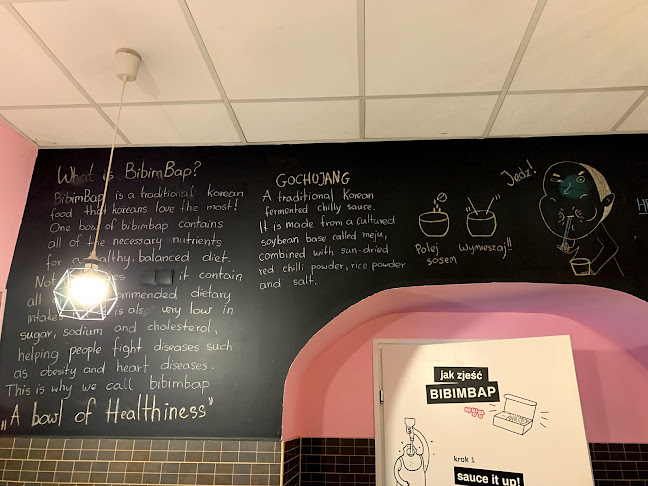 What is BibimBap?
BibimBap is a traditional korean
food that koreans love the most!
One bowl of bibimbap contains
all of the necessary nutrients
for a healthy, balanced diet.
Not it contain
all commended dietary
intake is also very low in
sugar, sodium and cholesterol,
helping people fight diseases such
as obesity and heart diseases.
This is why we call bibimbap
„A bowl of Healthiness"
GOCHUJANG
A traditional Korean
fermented chilly sauce.
It is made from a cultured
soybean base called meju,
combined with sun-dried
red chilli powder, rice powder
and salt.
Polej
sosem
Wymieszaj!!
Jedz!
jak zjeść
BIBIMBAP
krok 1
sauce it up!